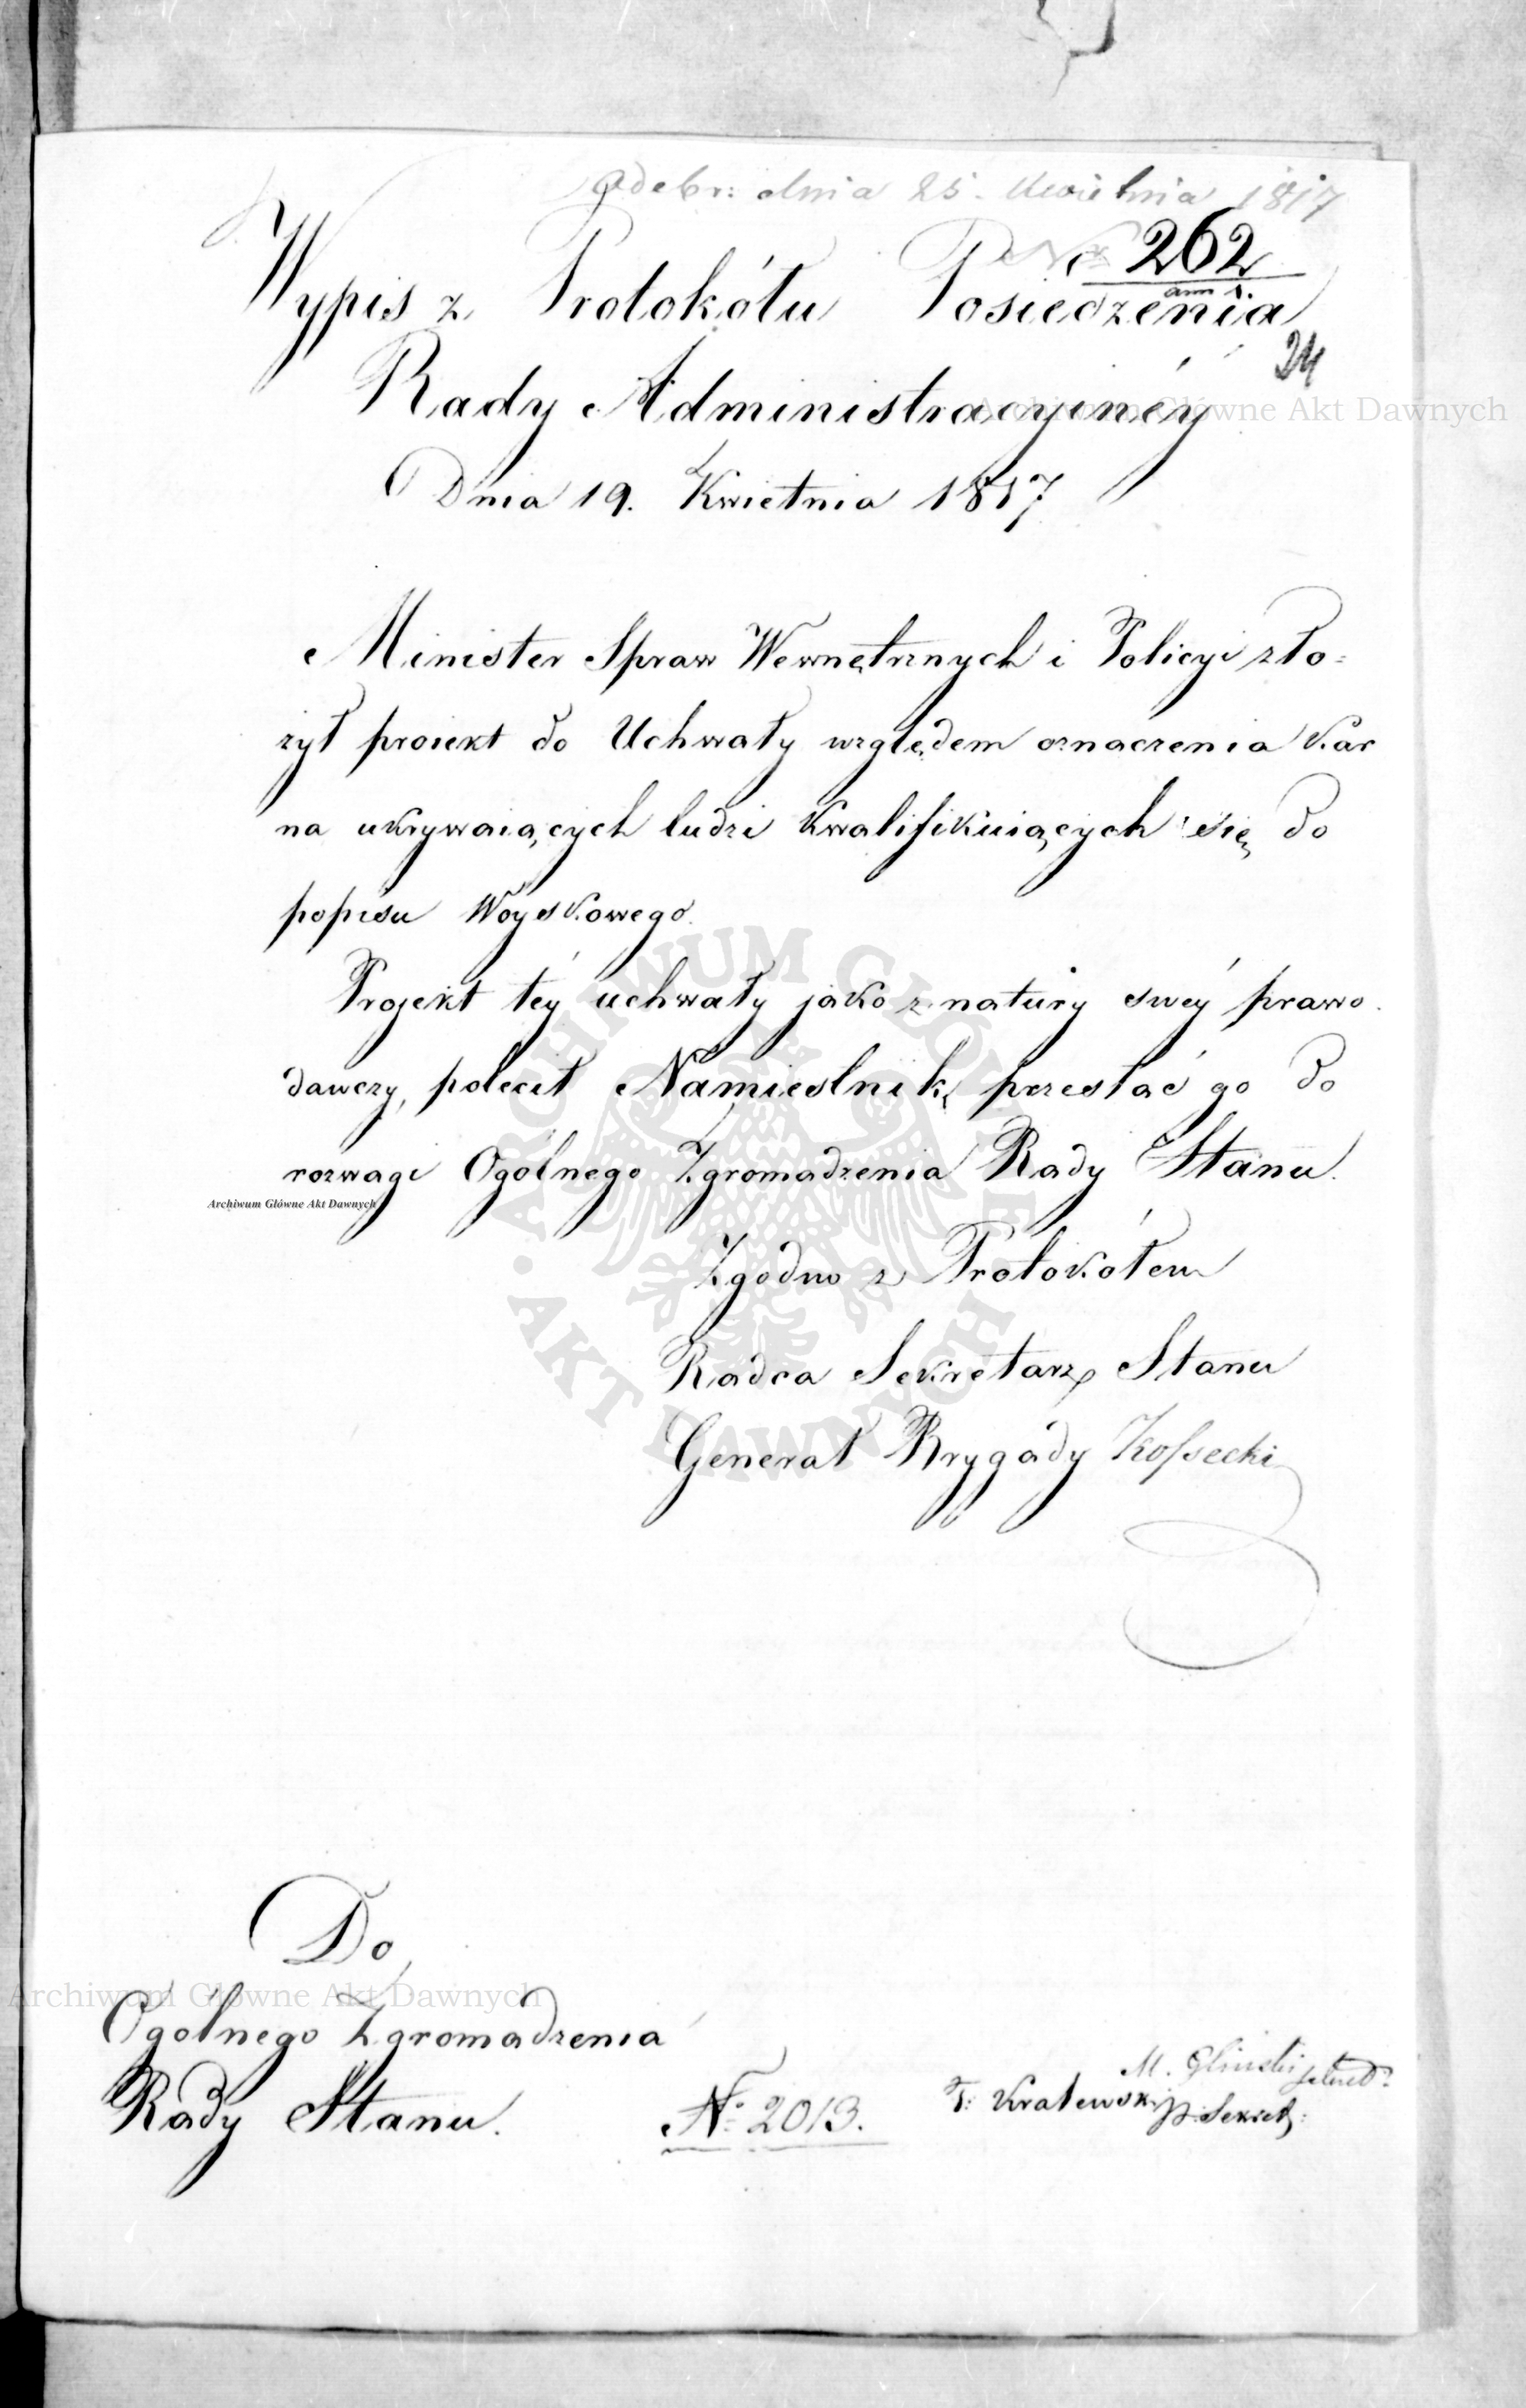 Odebr: dnia 25. Kwietnia 1817
No 262
ann 1.
Wypis z Protokółu Posiedzenia
24
Rady Administracyinéy
Archiwum Główne Akt Dawnych
Dnia 19. Kwietnia 1817
Minister Spraw Wewnętrznych i Policyi zło=
żył proiekt do Uchwały względem oznaczenia kar
na ukrywaiących ludzi kwalifikuiących się do
popisu Woyskowego.
Projekt téy uchwały jako z natury swéy prawo
dawczy, polecił Namiestnik przesłać go do
rozwagi Ogólnego Zgromadzenia Rady Stanu.
Archiwum Główne Akt Dawnych
Zgodno z Protokółem
Radca Sekretarz Stanu
Generał Brygady Kossecki
ARCHIWUM GŁÓWNE AKT DAWNYCH
Do
Archiwum Główne Akt Dawnych
Ogólnego Zgromadzenia
Rady Stanu.
No 2013.
M. Gliński
T: Kralewski p. Sekret: